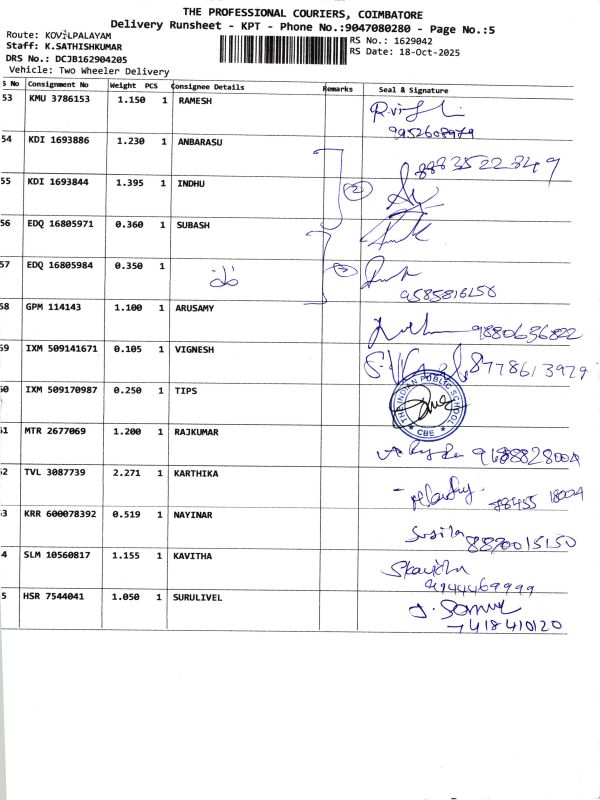 THE PROFESSIONAL COURIERS, COIMBATORE
Delivery Runsheet - KPT - Phone No.:9047080280 - Page No.:5
Route: KOVILPALAYAM
Staff: K.SATHISHKUMAR
DRS No.: DCJB162904205
Vehicle: Two Wheeler Delivery
RS No.: 1629042
RS Date: 18-Oct-2025
S No Consignment No Weight PCS Consignee Details Remarks Seal & Signature
53 KMU 3786153 1.150 1 RAMESH
9952608979
54 KDI 1693886 1.230 1 ANBARASU
8883522849
55 KDI 1693844 1.395 1 INDHU 2
56 EDQ 16805971 0.360 1 SUBASH
57 EDQ 16805984 0.350 1
9585816158
58 GPM 114143 1.100 1 ARUSAMY 9880636822
59 IXM 509141671 0.105 1 VIGNESH 8778613979
60 IXM 509170987 0.250 1 TIPS THE INDIAN PUBLIC SCHOOL CBE
61 MTR 2677069 1.200 1 RAJKUMAR
62 TVL 3087739 2.271 1 KARTHIKA
63 KRR 600078392 0.519 1 NAYINAR Susila 8870015150
4 SLM 10560817 1.155 1 KAVITHA Skavitha
9944469999
5 HSR 7544041 1.050 1 SURULIVEL
7418410120